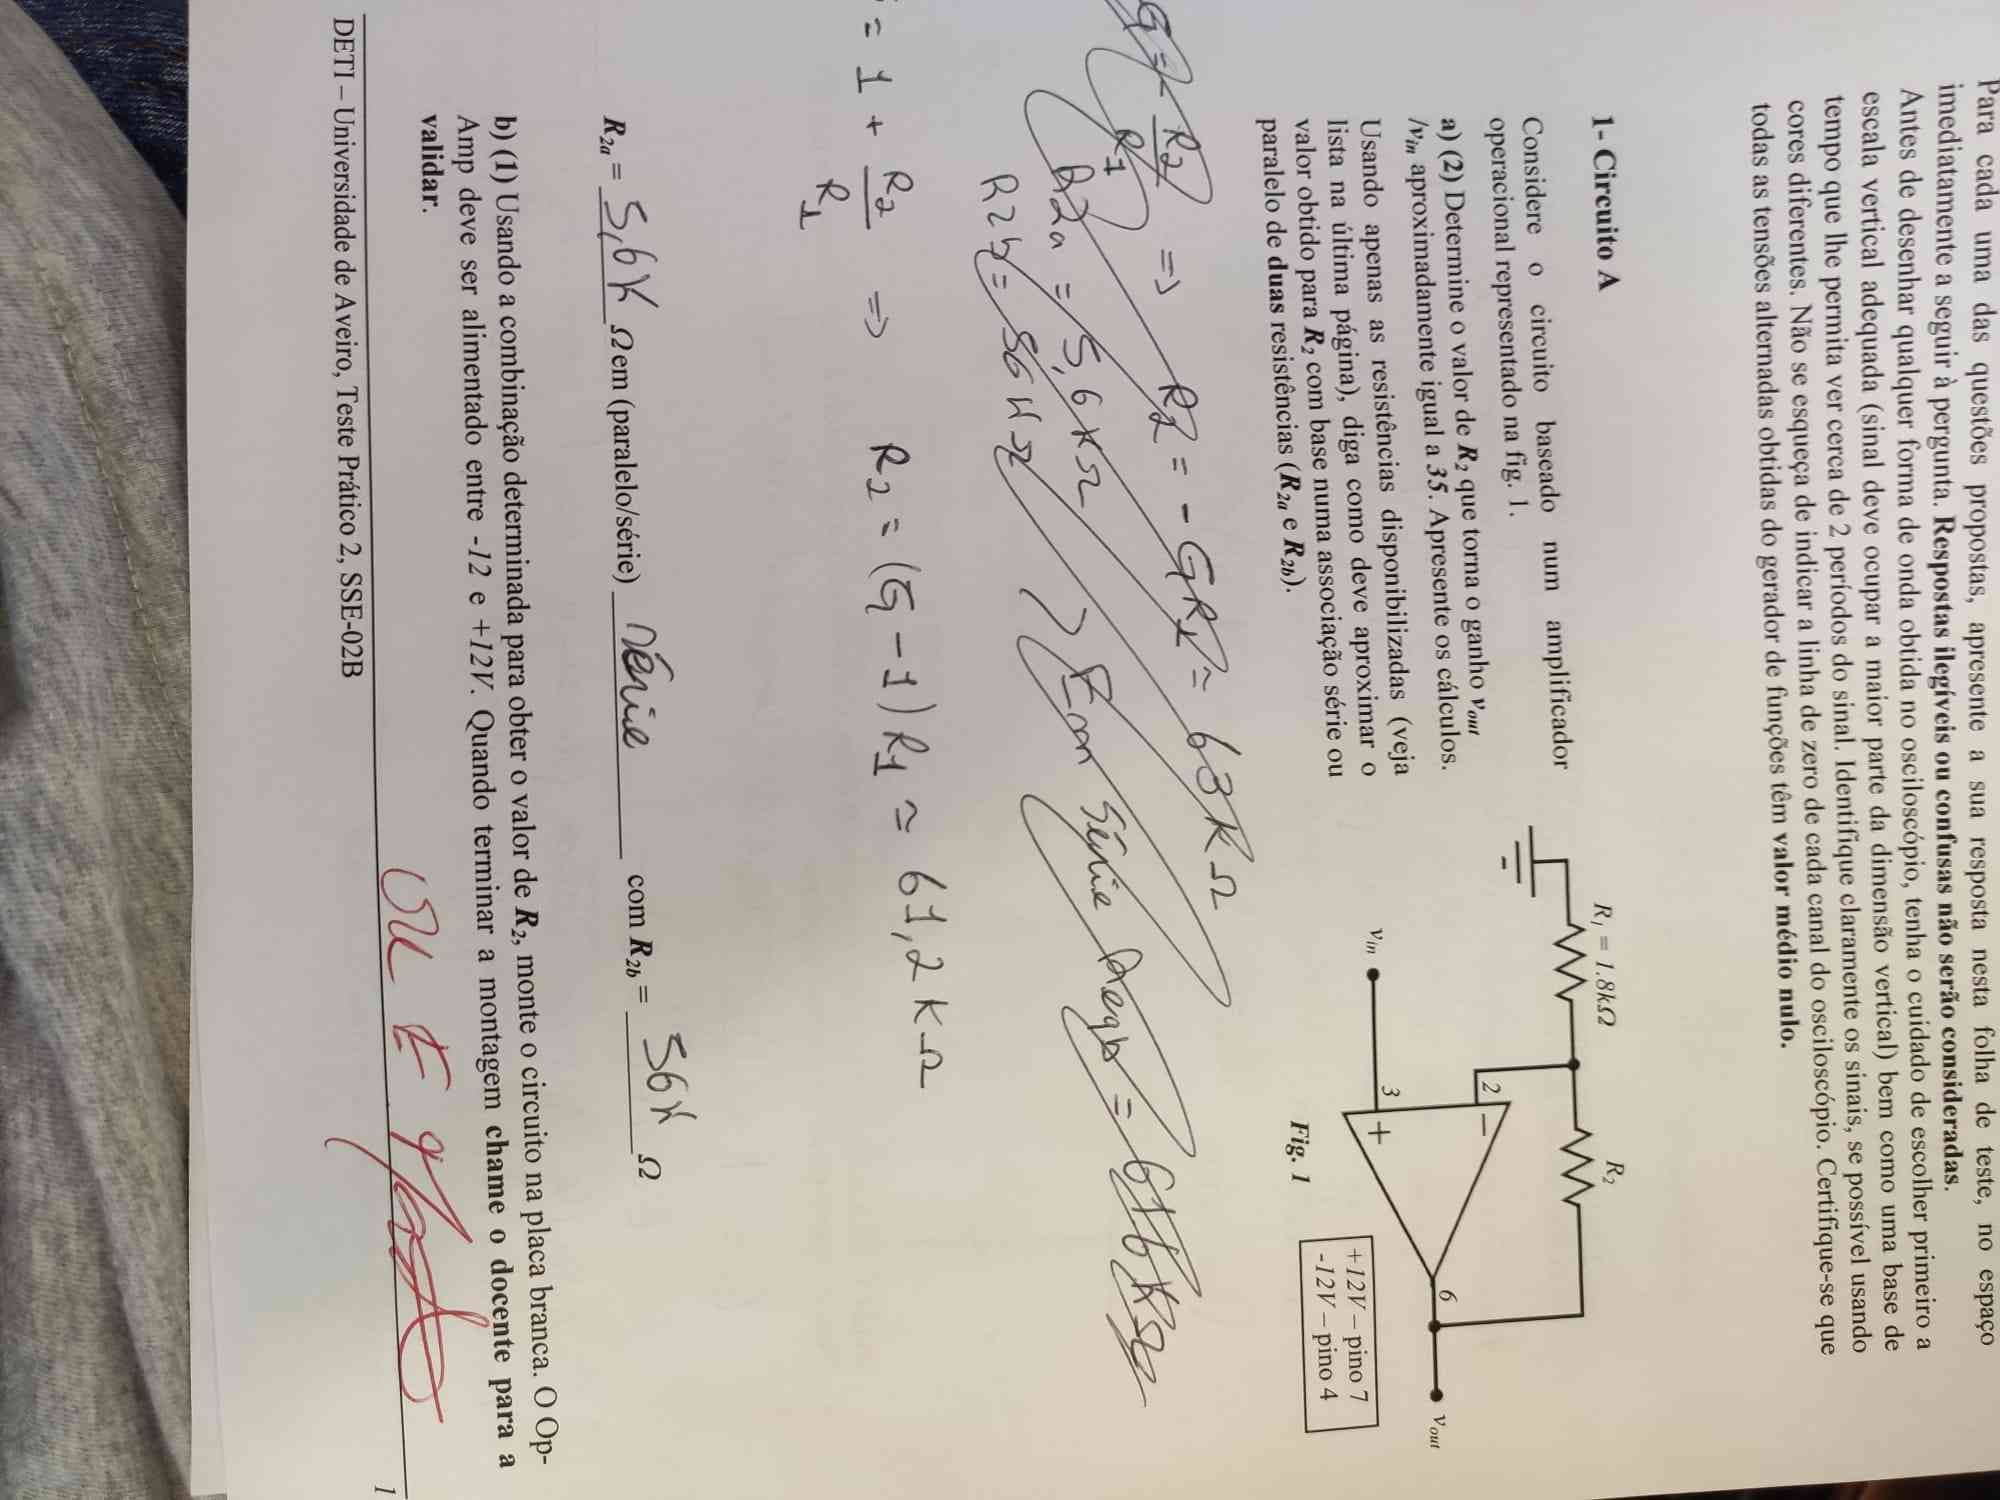 Para cada uma das questões propostas, apresente a sua resposta nesta folha de teste, no espaço
imediatamente a seguir à pergunta. Respostas ilegíveis ou confusas não serão consideradas.
Antes de desenhar qualquer forma de onda obtida no osciloscópio, tenha o cuidado de escolher primeiro a
escala vertical adequada (sinal deve ocupar a maior parte da dimensão vertical) bem como uma base de
tempo que lhe permita ver cerca de 2 períodos do sinal. Identifique claramente os sinais, se possível usando
cores diferentes. Não se esqueça de indicar a linha de zero de cada canal do osciloscópio. Certifique-se que
todas as tensões alternadas obtidas do gerador de funções têm valor médio nulo.
1- Circuito A
Considere o circuito baseado num amplificador
operacional representado na fig. 1.
a) (2) Determine o valor de R2 que torna o ganho vout
/vin aproximadamente igual a 35. Apresente os cálculos.
Usando apenas as resistências disponibilizadas (veja
lista na última página), diga como deve aproximar o
valor obtido para R2 com base numa associação série ou
paralelo de duas resistências (R2a e R2b).
R1 = 1.8kΩ
R2
2
−
6
vout
3
+
vin
+12V – pino 7
-12V – pino 4
Fig. 1
G = - R2/R1 => R2 = - GR1 ≃ 63KΩ
R2a = 5,6KΩ
R2b = 56KΩ
Em Série
= 1 + R2/R1 => R2 = (G-1)R1 ≃ 61,2KΩ
R2a = 5,6K Ω em (paralelo/série) série com R2b = 56K Ω
b) (1) Usando a combinação determinada para obter o valor de R2, monte o circuito na placa branca. O Op-
Amp deve ser alimentado entre -12 e +12V. Quando terminar a montagem chame o docente para a
validar.
DETI – Universidade de Aveiro, Teste Prático 2, SSE-02B
1